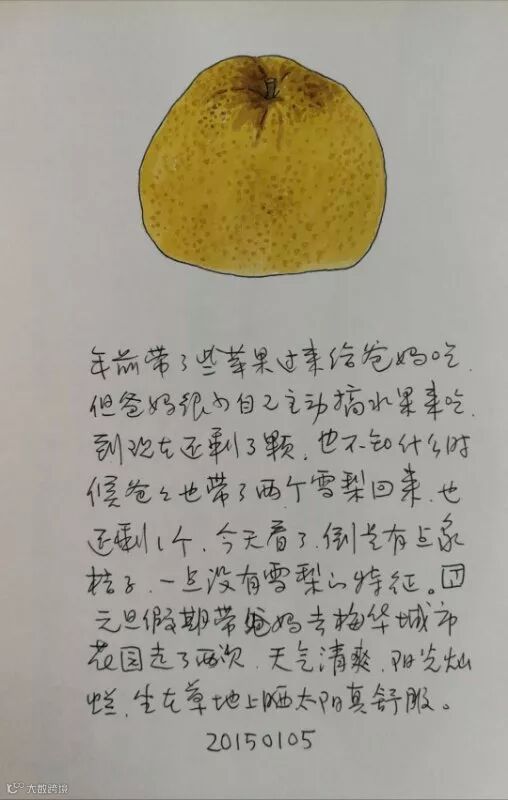 年前带了些苹果过来给爸妈吃.
但爸妈很少自己主动摘水果来吃.
到现在还剩了颗，也不知什么时
候爸爸也带了两个雪梨回来.也
还剩1个.今天看了.倒是有点象
桔子.一点没有雪梨的特征。
元旦假期带爸妈去梅华城市
花园走了两次.天气清爽.阳光灿
烂.坐在草地上晒太阳真舒服。
20150105
大数跨境